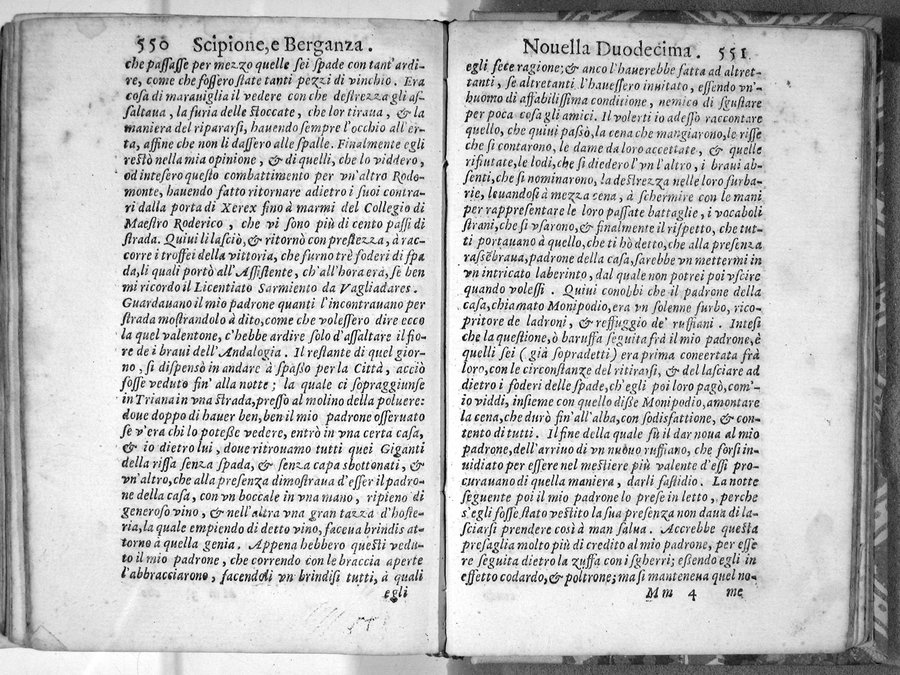 550 Scipione, e Berganza.
che paſſaſſe per mezzo quelle ſei ſpade con tant'ardi-
re, come che foſſero ſtate tanti pezzi di vinchio. Era
coſa di marauiglia il vedere con che deſtrezza gli aſ-
ſaltaua, la furia delle ſtoccate, che lor tiraua, & la
maniera del ripararſi, hauendo ſempre l'occhio all'er-
ta, affine che non li daſſero alle ſpalle. Finalmente egli
reſtò nella mia opinione, & di quelli, che lo viddero,
od inteſero queſto combattimento per vn'altro Rodo-
monte, hauendo fatto ritornare adietro i ſuoi contra-
ri dalla porta di Xerex fino à marmi del Collegio di
Maeſtro Roderico, che vi ſono più di cento paſſi di
ſtrada. Quiui li laſciò, & ritornò con preſtezza, à rac-
corre i troffei della vittoria, che furno trè foderi di ſpa
da, li quali portò all'Aſſiſtente, ch'all'hora erà, ſe ben
mi ricordo il Licentiato Sarmiento da Vagliadares.
Guardauano il mio padrone quanti l'incontrauano per
ſtrada moſtrandolo à dito, come che voleſſero dire ecco
la quel valentone, c'hebbe ardire ſolo d'aſſaltare il fio-
re de i braui dell'Andalogia. Il reſtante di quel gior-
no, ſi diſpensò in andare à ſpaſſo per la Città, acciò
foſſe veduto fin' alla notte; la quale ci ſopraggiunſe
in Triana in vna ſtrada, preſſo al molino della poluere:
doue doppo di hauer ben, ben il mio padrone oſſeruato
ſe v'era chi lo poteſſe vedere, entrò in vna certa caſa,
& io dietro lui, doue ritrouamo tutti quei Giganti
della riſſa ſenza ſpada, & ſenza capa sbottonati, &
vn'altro, che alla preſenza dimoſtraua d'eſſer il padro-
ne della caſa, con vn boccale in vna mano, ripieno di
generoſo vino, & nell'altra vna gran tazza d'hoſte-
ria, la quale empiendo di detto vino, faceua brindis at-
torno à quella genia. Appena hebbero queſti vedu-
to il mio padrone, che correndo con le braccia aperte
l'abbracciarono, facendoli vn brindiſi tutti, à quali
egli
Nouella Duodecima. 551
egli fece ragione; & anco l'hauerebbe fatta ad altret-
tanti, ſe altretanti l'haueſſero inuitato, eſſendo vn'-
huomo di affabiliſſima conditione, nemico di ſguſtare
per poca coſa gli amici. Il volerti io adeſſò raccontare
quello, che quiui paſsò, la cena che mangiarono, le riſſe
che ſi contarono, le dame da loro accettate, & quelle
rifiutate, le lodi, che ſi diedero l'vn l'altro, i braui ab-
ſenti, che ſi nominarono, la deſtrezza nelle loro furba-
rie, leuandoſi à mezza cena, à ſchermire con le mani
per rappreſentare le loro paſſate battaglie, i vocaboli
ſtrani, che ſi vſarono, & finalmente il riſpetto, che tut-
ti portauano à quello, che ti hò detto, che alla preſenza
raſſẽbraua, padrone della caſa, ſarebbe vn mettermi in
vn intricato laberinto, dal quale non potrei poi vſcire
quando voleſſi. Quiui conobbi che il padrone della
caſa, chiamato Monipodio, era vn ſolenne furbo, rico-
pritore de ladroni, & reffuggio de' ruffiani. Inteſi
che la queſtione, ò baruffa ſeguita frà il mio padrone, è
quelli ſei (già ſopradetti) era prima concertata frà
loro, con le circonſtanze del ritirarſi, & del laſciare ad
dietro i foderi delle ſpade, ch'egli poi loro pagò, com'-
io viddi, inſieme con quello diſſe Monipodio, amontare
la cena, che durò fin'all'alba, con ſodisfattione, & con-
tento di tutti. Il fine della quale fù il dar noua al mio
padrone, dell'arriuo di vn nuouo ruffiano, che forſi in-
uidiato per eſſere nel meſtiere più valente d'eſſi pro-
curauano di quella maniera, darli faſtidio. La notte
ſeguente poi il mio padrone lo preſe in letto, perche
s'egli foſſe ſtato veſtito la ſua preſenza non daua di la-
ſciarſi prendere così à man ſalua. Accrebbe queſta
preſaglia molto più di credito al mio padrone, per eſſe
re ſeguita dietro la zuffa con i ſgherri; eſſendo egli in
effetto codardo, & poltrone; ma ſi manteneua quel no-
Mm 4 me